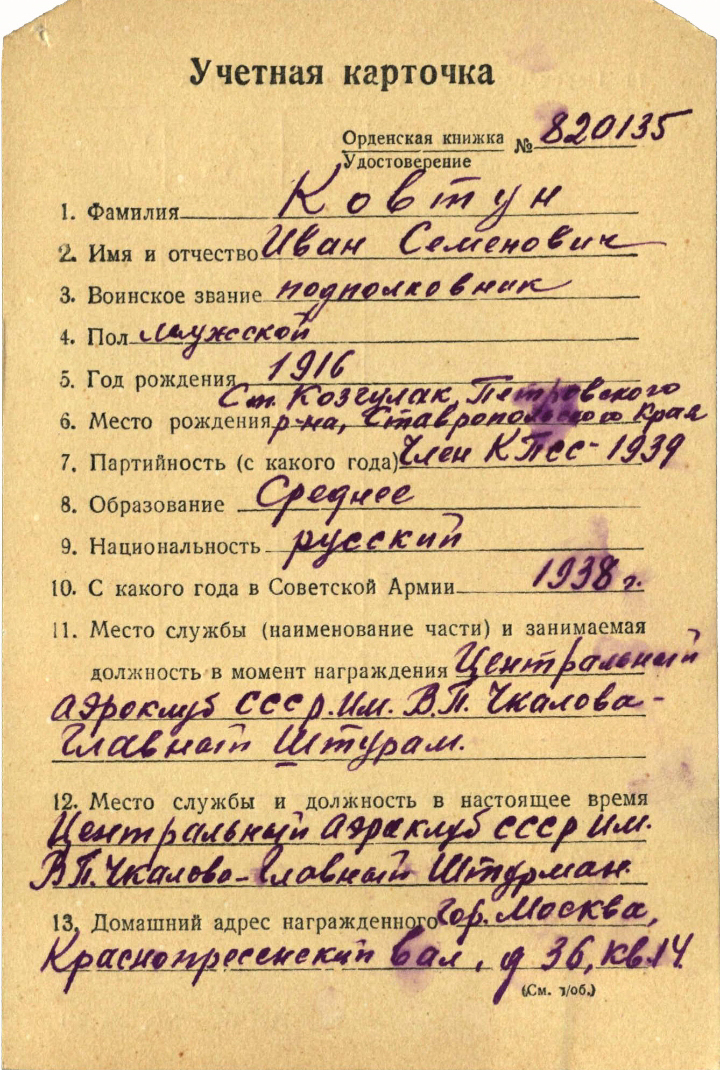 Учетная карточка
Орденская книжка № 820135
Удостоверение
1. Фамилия Ковтун
2. Имя и отчество Иван Семенович
3. Воинское звание подполковник
4. Пол мужской
5. Год рождения 1916
Ст. Козгулак, Петровского
6. Место рождения р-на, Ставропольского Края
7. Партийность (с какого года) Член КПСС - 1939
8. Образование Среднее
9. Национальность русский
10. С какого года в Советской Армии 1938 г.
11. Место службы (наименование части) и занимаемая
должность в момент награждения Центральный
аэроклуб СССР. Им. В.П. Чкалова -
Главный Штурам.
12. Место службы и должность в настоящее время
Центральный аэраклуб СССР Им.
В.П. Чкалова - Главный Штурман.
13. Домашний адрес награжденного гор. Москва,
Краснопресенский вал, д 36, кв. 14.
(См. н/об.)